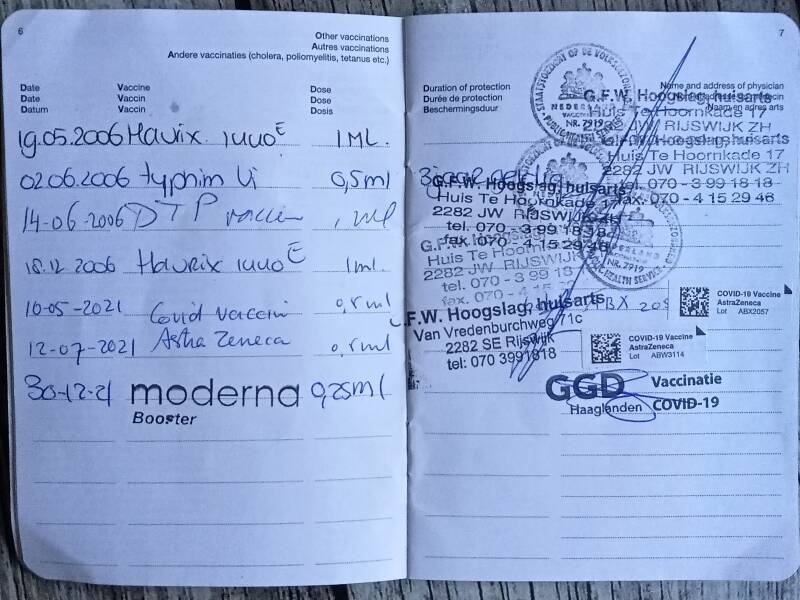 6
Other vaccinations
Autres vaccinations
Andere vaccinaties (cholera, poliomyelitis, tetanus etc.)
Date
Date
Datum
Vaccine
Vaccin
Vaccin
Dose
Dose
Dosis
19.05.2006 Havrix 1440E 1 ML.
02.06.2006 typhim Vi 0,5ml
14-06-2006 DTP vaccin
18.12 2006 Havrix 1440E 1ml.
10-05-2021 Covid vaccin
12-07-2021 Astra Zeneca
30-12-21 moderna 0,25ml
Booster
7
Duration of protection
Durée de protection
Beschermingsduur
Name and address of physician
Naam en adres arts
STAATSTOEZICHT OP DE VOLKSGEZONDHEID
NEDERLAND
NR. 7919
PUBLIC HEALTH SERVICE
G.F.W. Hoogslag, huisarts
Huis Te Hoornkade 17
2282 JW RIJSWIJK ZH
Huis Te Hoornkade 17
2282 JW RIJSWIJK ZH
tel. 070 - 3 99 18 18
fax. 070 - 4 15 29 46
3 jaar geldig
G.F.W. Hoogslag, huisarts
Huis Te Hoornkade 17
2282 JW RIJSWIJK ZH
tel. 070 - 3 99 18 18
fax. 070 - 4 15 29 46
NR. 7919
PUBLIC HEALTH SERVICE
Huis Te Hoornkade 17
2282 JW RIJSWIJK
tel. 070 - 3 99 18
fax. 070 - 4 15
COVID-19 Vaccine
AstraZeneca
Lot ABX2057
G.F.W. Hoogslag, huisarts
Van Vredenburchweg 71c
2282 SE Rijswijk
tel: 070 3991818
COVID-19 Vaccine
AstraZeneca
Lot ABW3114
GGD Vaccinatie
Haaglanden COVID-19